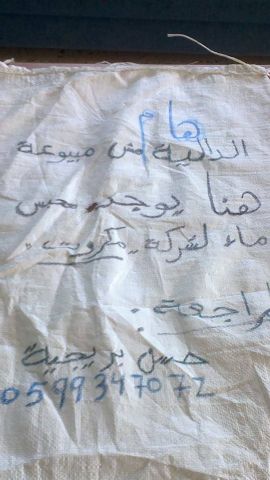 هام
الدالية مش مبيوعة
هنا يوجد محبس
ماء لشركة مكروت.
للمراجعة:
حسن بريجية
0599347072